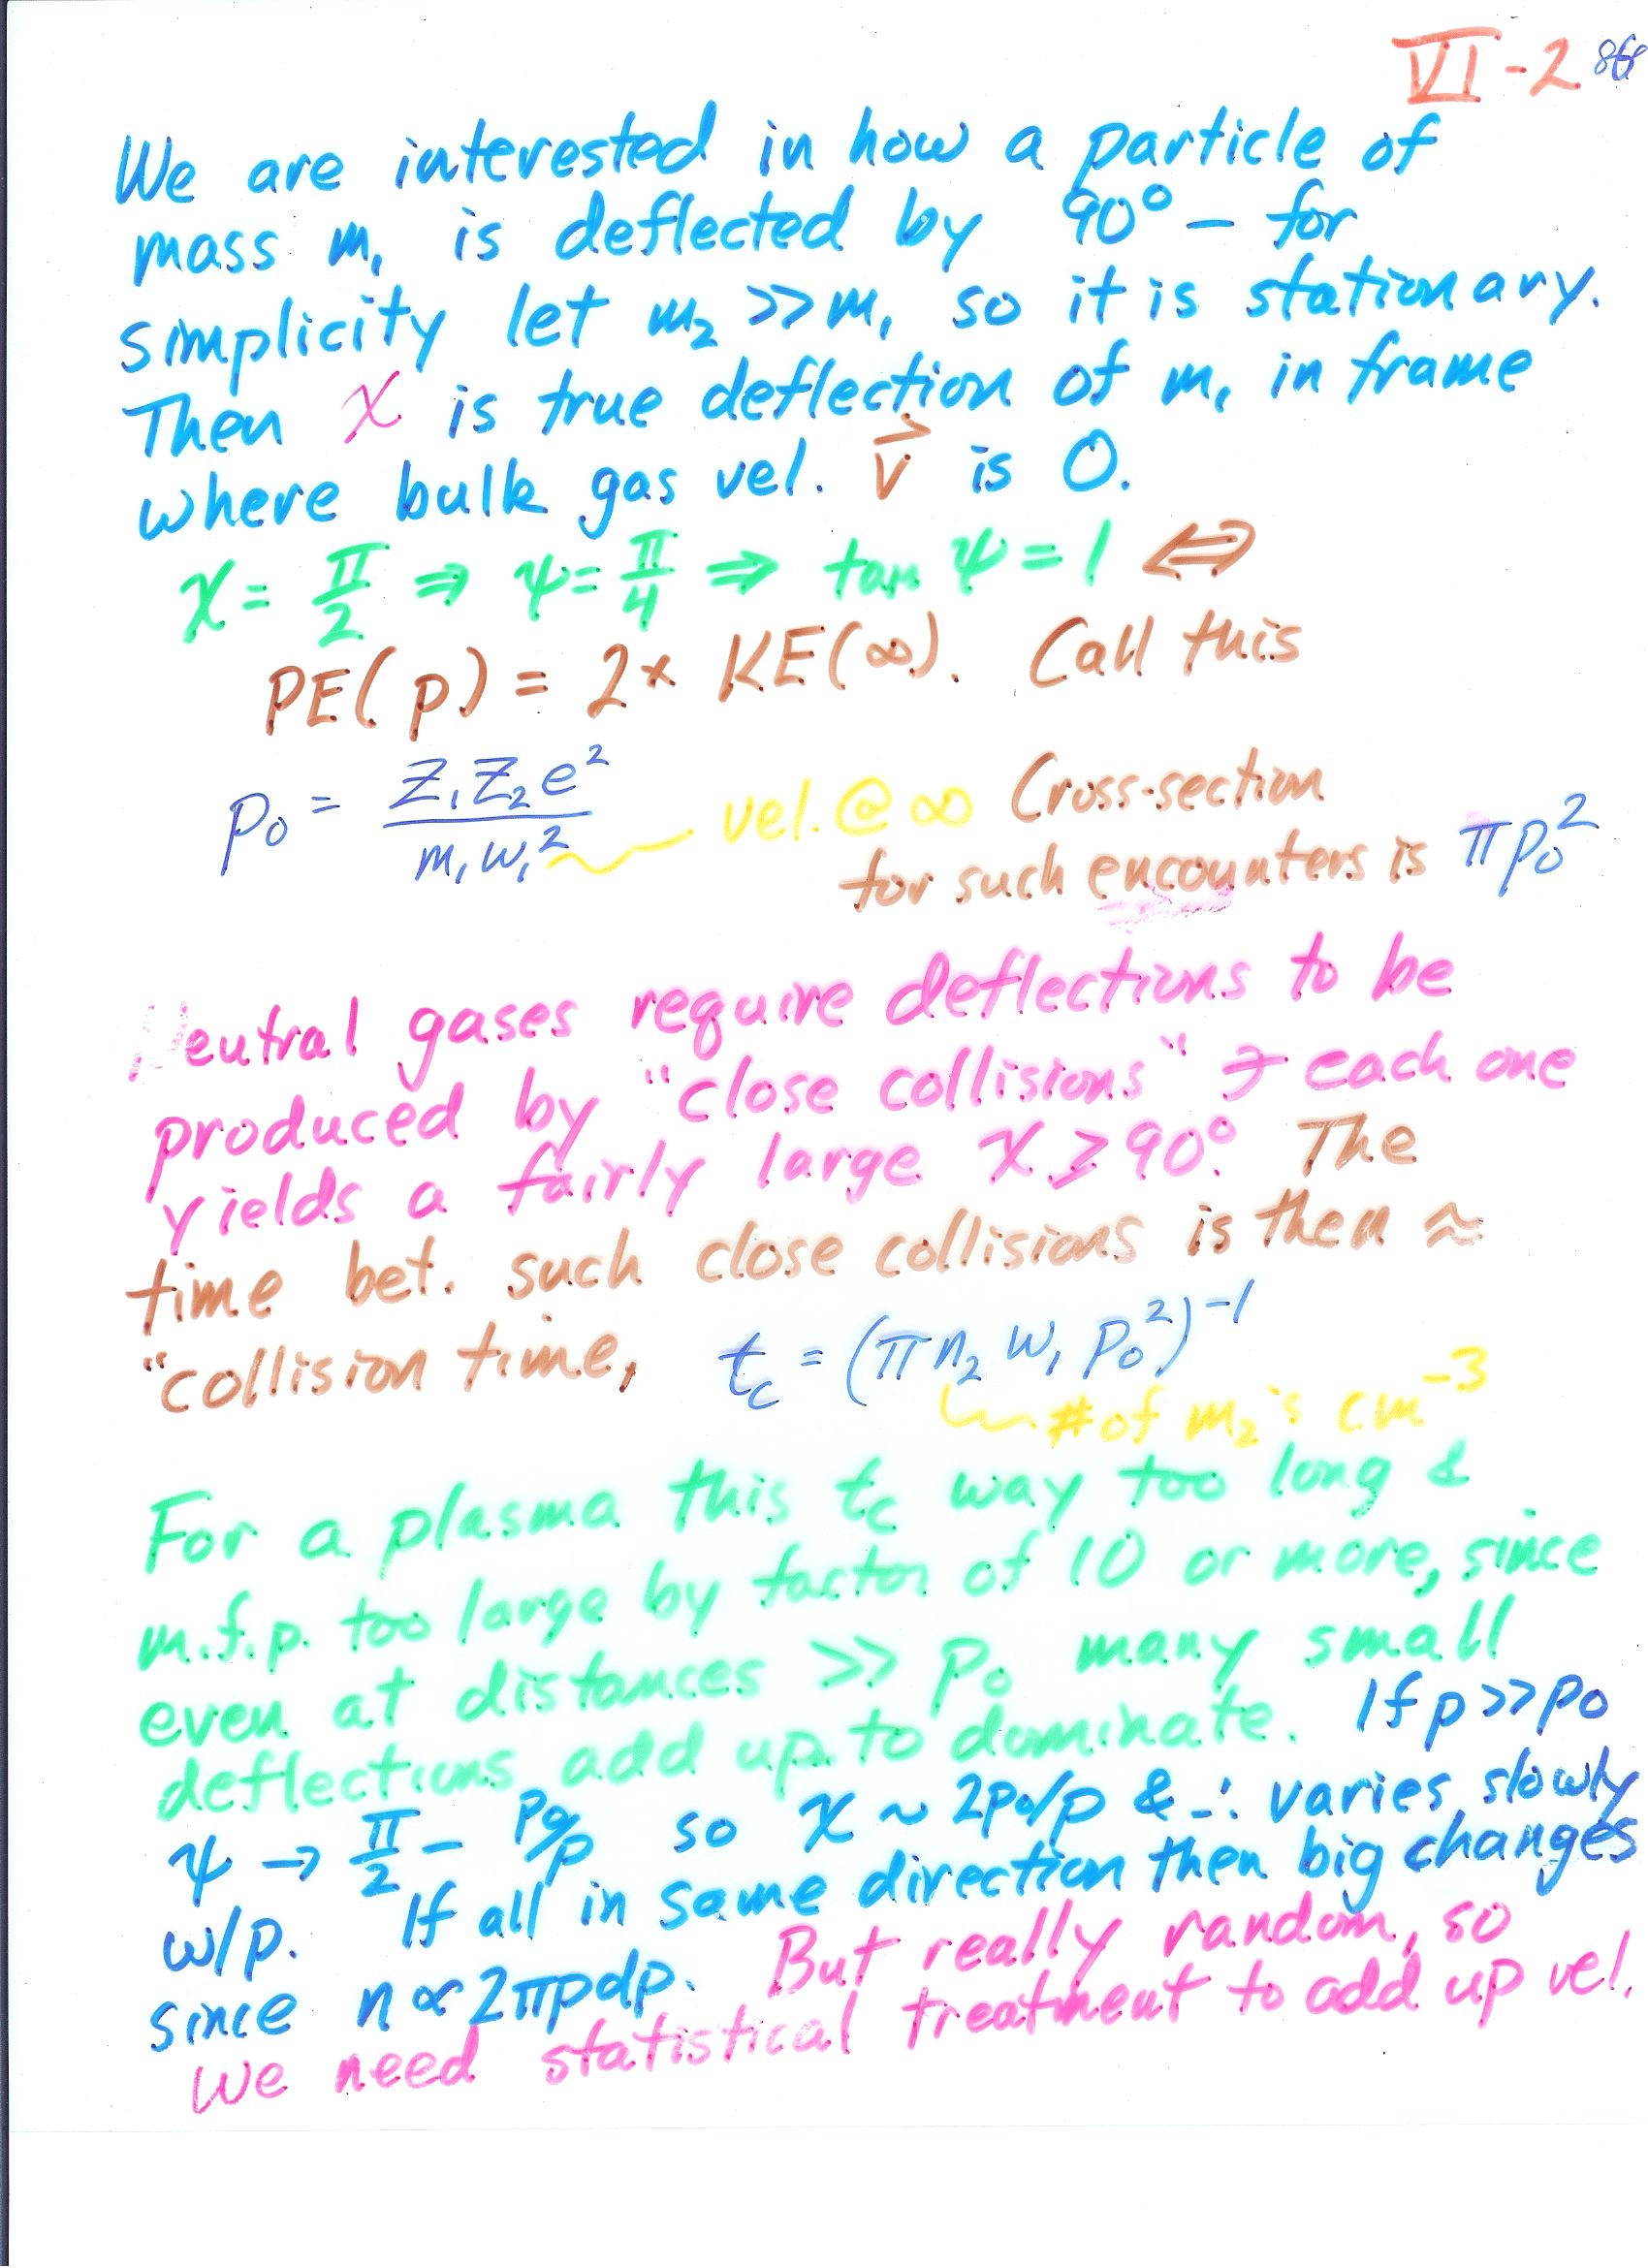 VI-2 86
We are interested in how a particle of
mass m₁ is deflected by 90° – for
simplicity let m₂ >> m₁ so it is stationary.
Then χ is true deflection of m₁ in frame
where bulk gas vel. v⃗ is 0.
χ = π/2 ⇒ ψ = π/4 ⇒ tan ψ = 1 ⇔
PE(p) = 2× KE(∞). Call this
p₀ = Z₁Z₂e²/m₁w₁² vel. @ ∞ Cross-section
for such encounters is πp₀²
Neutral gases require deflections to be
produced by "close collisions" ∋ each one
yields a fairly large χ ≥ 90°. The
time bet. such close collisions is then ≈
"collision time, t_c = (πn₂ w₁ p₀²)⁻¹
# of m₂'s cm⁻³
For a plasma this t_c way too long &
m.f.p. too large by factor of 10 or more, since
even at distances >> p₀ many small
deflections add up to dominate. If p >> p₀
ψ → π/2 – p₀/p so χ ~ 2p₀/p & ∴ varies slowly
w/p. If all in same direction then big changes
since n ∝ 2πpdp. But really random, so
we need statistical treatment to add up vel.